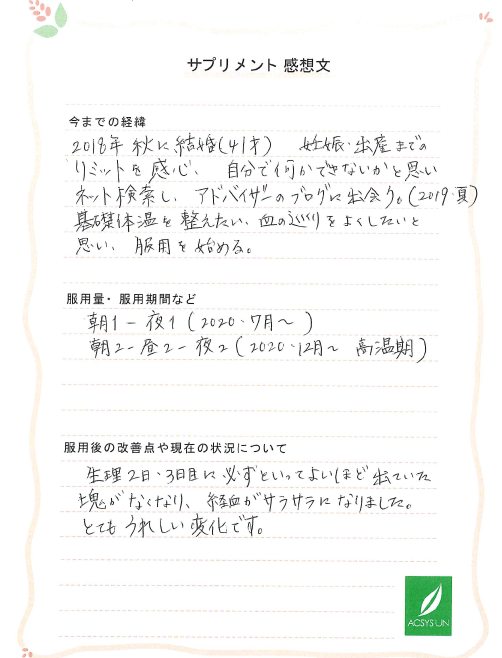 サプリメント 感想文
今までの経緯
2018年 秋に結婚(41才) 妊娠・出産までの
リミットを感じ、自分で何かできないかと思い
ネット検索し、アドバイザーのブログに出会う。(2019・夏)
基礎体温を整えたい、血の巡りをよくしたいと
思い、服用を始める。
服用量・服用期間など
朝1－夜1 (2020・7月～ )
朝2－昼2－夜2 (2020・12月～ 高温期)
服用後の改善点や現在の状況について
生理2日・3日目に必ずといってよいほど出ていた
塊がなくなり、経血がサラサラになりました。
とてもうれしい変化です。
ACSYS UN